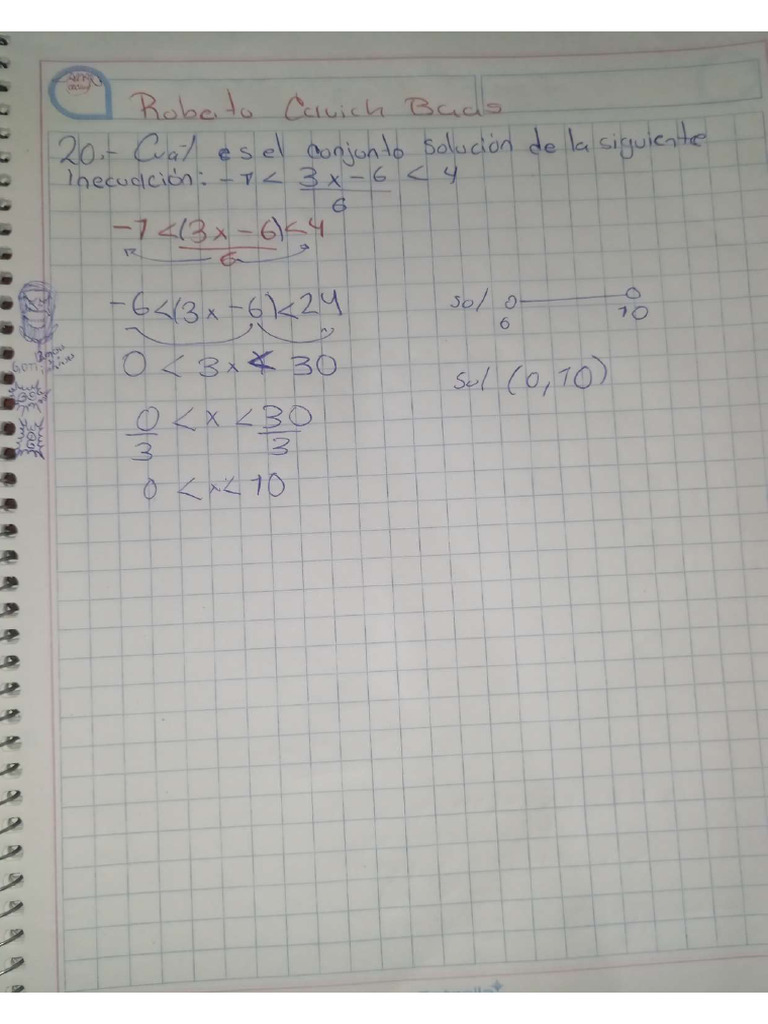 Roberto Cauich
20.- Cual es el conjunto solución de la siguiente
Inecuación: -1 < \frac{3x-6}{6} < 4
-1 < \frac{(3x-6)}{6} < 4
-6 < (3x-6) < 24
0 < 3x < 30
\frac{0}{3} < x < \frac{30}{3}
0 < x < 10
sol
6 10
Sol (0, 10)